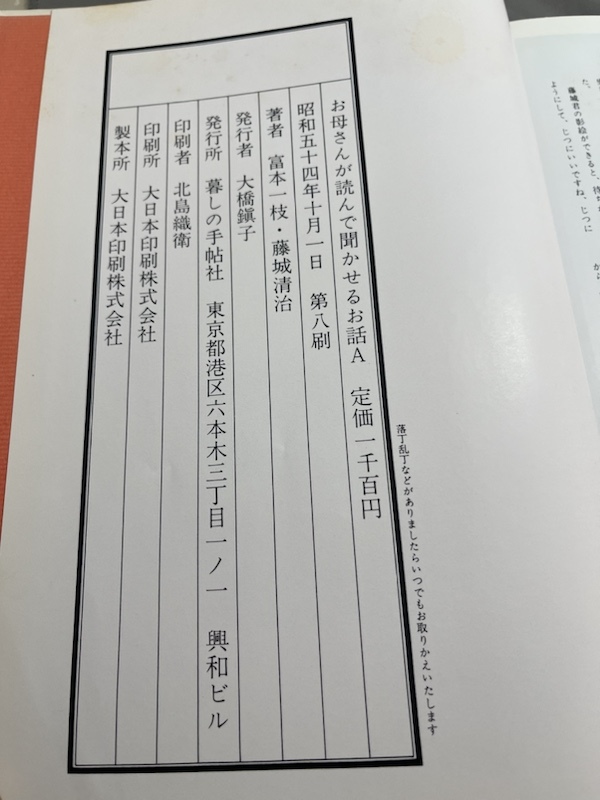 た、
藤城君の影絵ができると、待
ようにして、じつにいいですね、じつに
から
落丁乱丁などがありましたらいつでもお取りかえいたします
お母さんが読んで聞かせるお話A 定価一千百円
昭和五十四年十月一日 第八刷
著者 富本一枝・藤城清治
発行者 大橋鎭子
発行所 暮しの手帖社 東京都港区六本木三丁目一ノ一 興和ビル
印刷者 北島織衛
印刷所 大日本印刷株式会社
製本所 大日本印刷株式会社